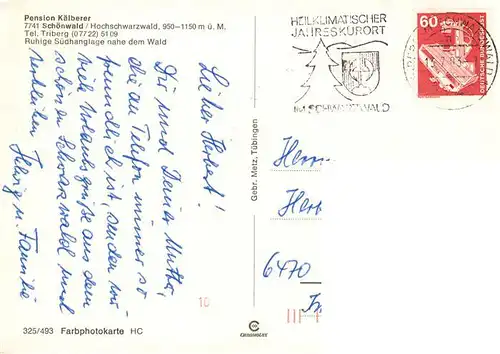 Pension Kölberer
7741 Schönwald / Hochschwarzwald, 950—1150 m ü. M.
Tel. Triberg (07722) 5109
Ruhige Südhanglage nahe dem Wald
HEILKLIMATISCHER
JAHRESKURORT
IM SCHWARZWALD
60
DEUTSCHE BUNDESPOST
Lieber Herbert!
Dir und Deiner Mutter,
die am Telefon immer so
freundlich ist, senden wir
viele Urlaubsgrüße aus dem
schönen Schwarzwald und
verbleiben
Helwig u. Familie
Gebr. Metz, Tübingen
Herrn
Herb
6470
10
325/493 Farbphotokarte HC